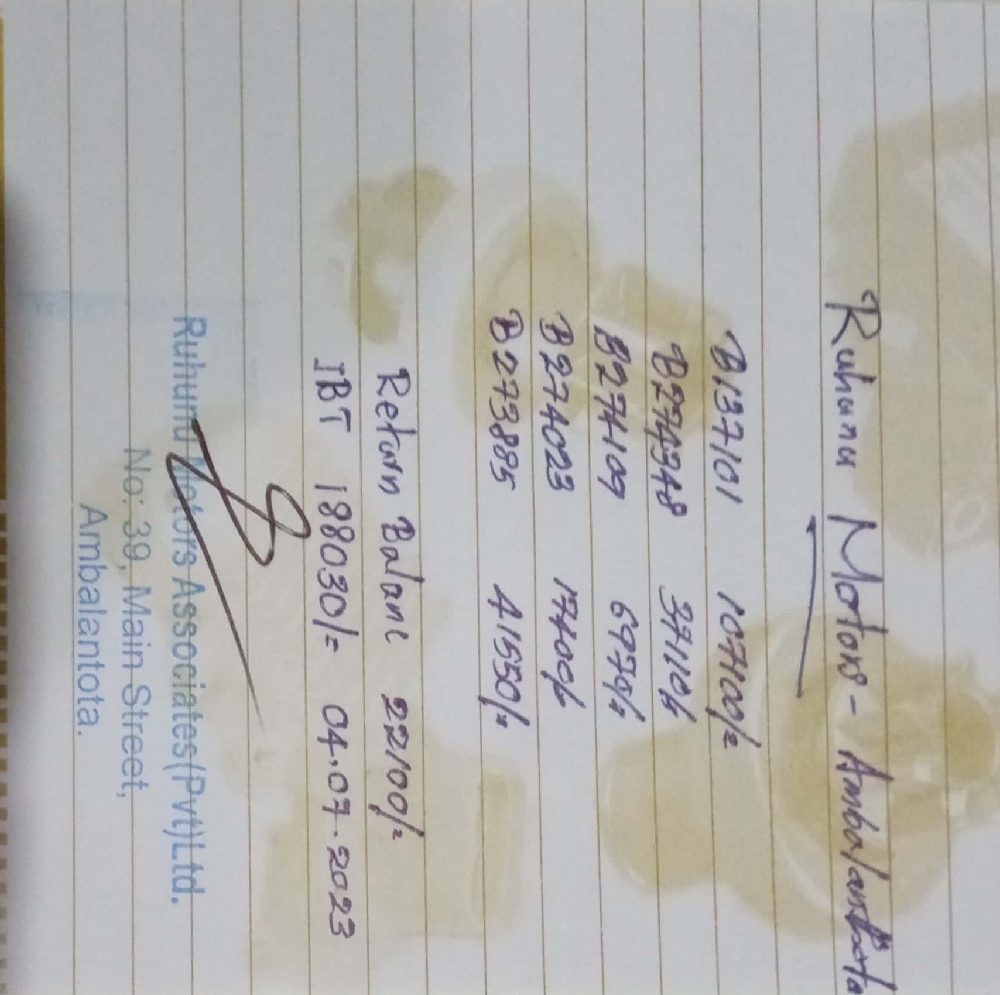 Ruhunu Motors - Ambalantota
B137101 107100/=
B274348 37110/=
B274109 6970/=
B274023 17400/=
B273885 41550/=
Return Balanc 22100/=
IBT 188030/= 04.07.2023
Ruhunu Motors Associates(Pvt)Ltd.
No: 39, Main Street,
Ambalantota.